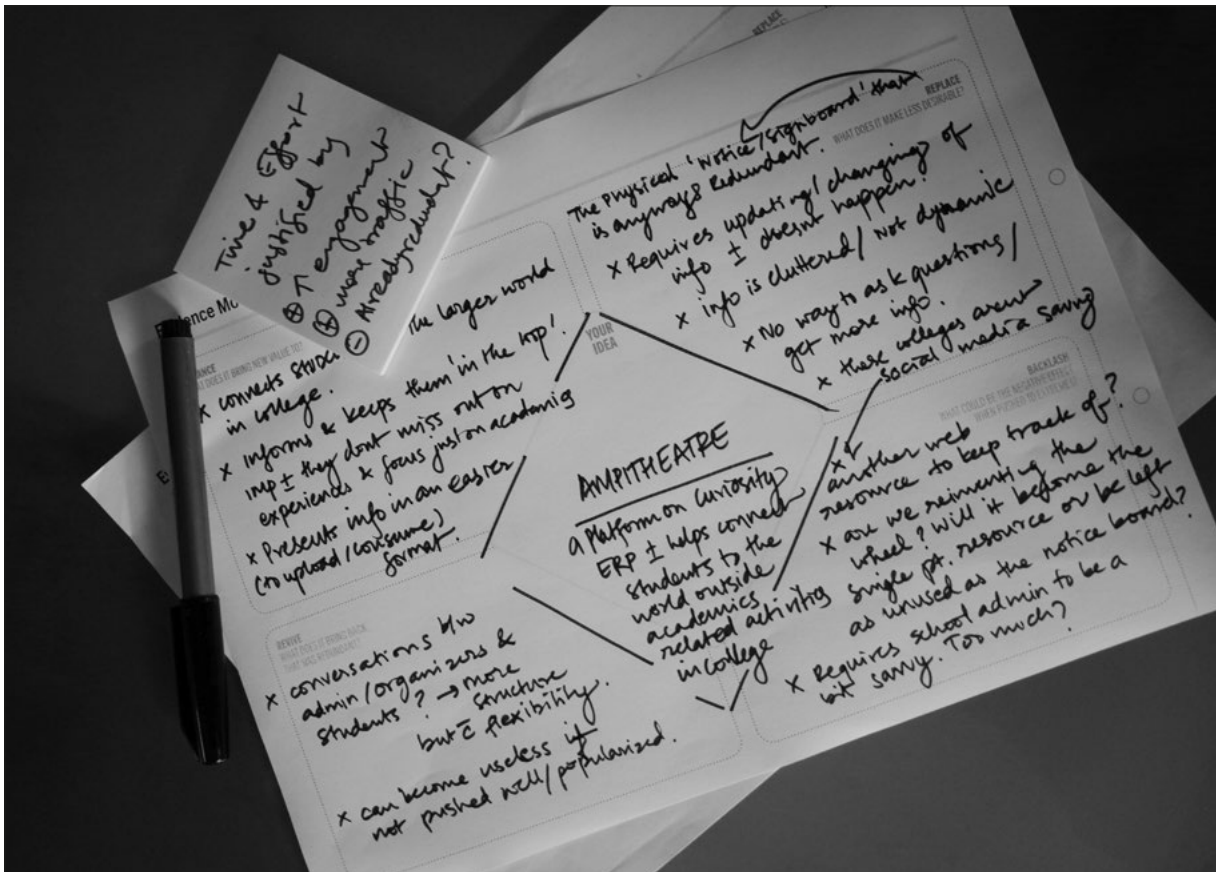 Time & Effort
justified by
⊕ ↑ engagement
⊕ more traffic
⊖ Already redundant?
REPLACE
WHAT DOES IT MAKE LESS DESIRABLE?
The Physical 'Notice/signboard' that
is anyways Redundant.
x Requires updating/changing of
info ± doesnt happen?
x info is cluttered/not dynamic
x No way to ask questions/
get more info.
x these colleges arent
social media savvy
WHAT DOES IT BRING NEW VALUE TO?
the larger world
in college.
x informs & keeps them 'in the loop'.
imp ± they dont miss out on
experiences & focus just on academics
x Presents info in an easier
(to upload/consume)
format.
YOUR
IDEA
AMPITHEATRE
a platform on Curiosity
ERP ± helps connect
students to the
world outside
academics
related activities
in college
BACKLASH
WHAT COULD BE THE NEGATIVE EFFECT
WHEN PUSHED TO EXTREMES?
another web
resource to keep track of?
x are we reinventing the
wheel? Will it become the
single pt. resource or be left
as unused as the notice board?
x Requires school admin to be a
bit savvy. Too much?
REVIVE
WHAT DOES IT BRING BACK
THAT WAS REDUNDANT?
x conversations b/w
admin/organizers &
students? → more
structure
but c̄ flexibility.
x can become useless if
not pushed well/popularized.